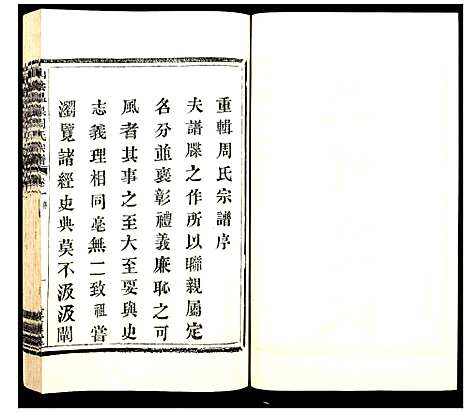 重輯周氏宗譜序
夫譜牒之作所以聯親屬定
名分並褒彰禮義廉恥之可
風者其事之至大至要與史
志義理相同毫無二致祖嘗
瀏覽諸經史典莫不汲汲闡